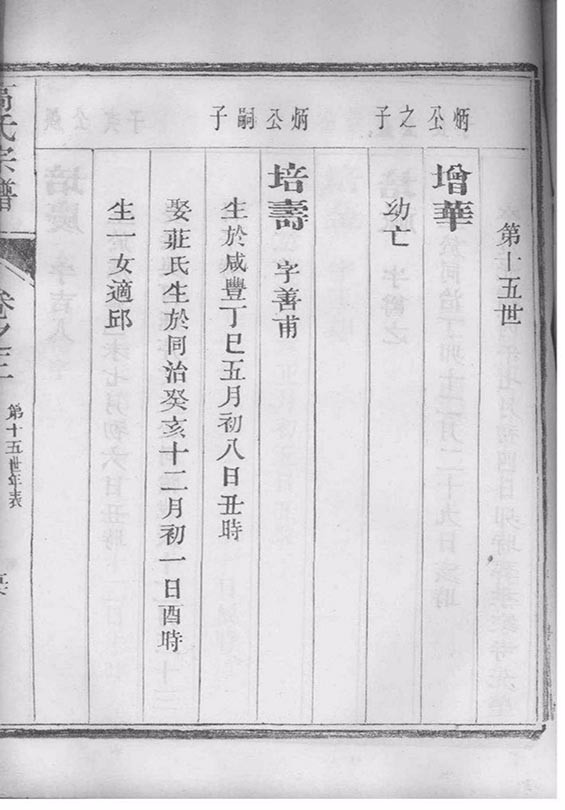 第十五世
炳公之子
增華
幼亡
炳公嗣子
培壽 字善甫
生於咸豐丁巳五月初八日丑時
娶莊氏生於同治癸亥十二月初一日酉時
生一女適邱
氏宗譜
卷之二
第十五世年表